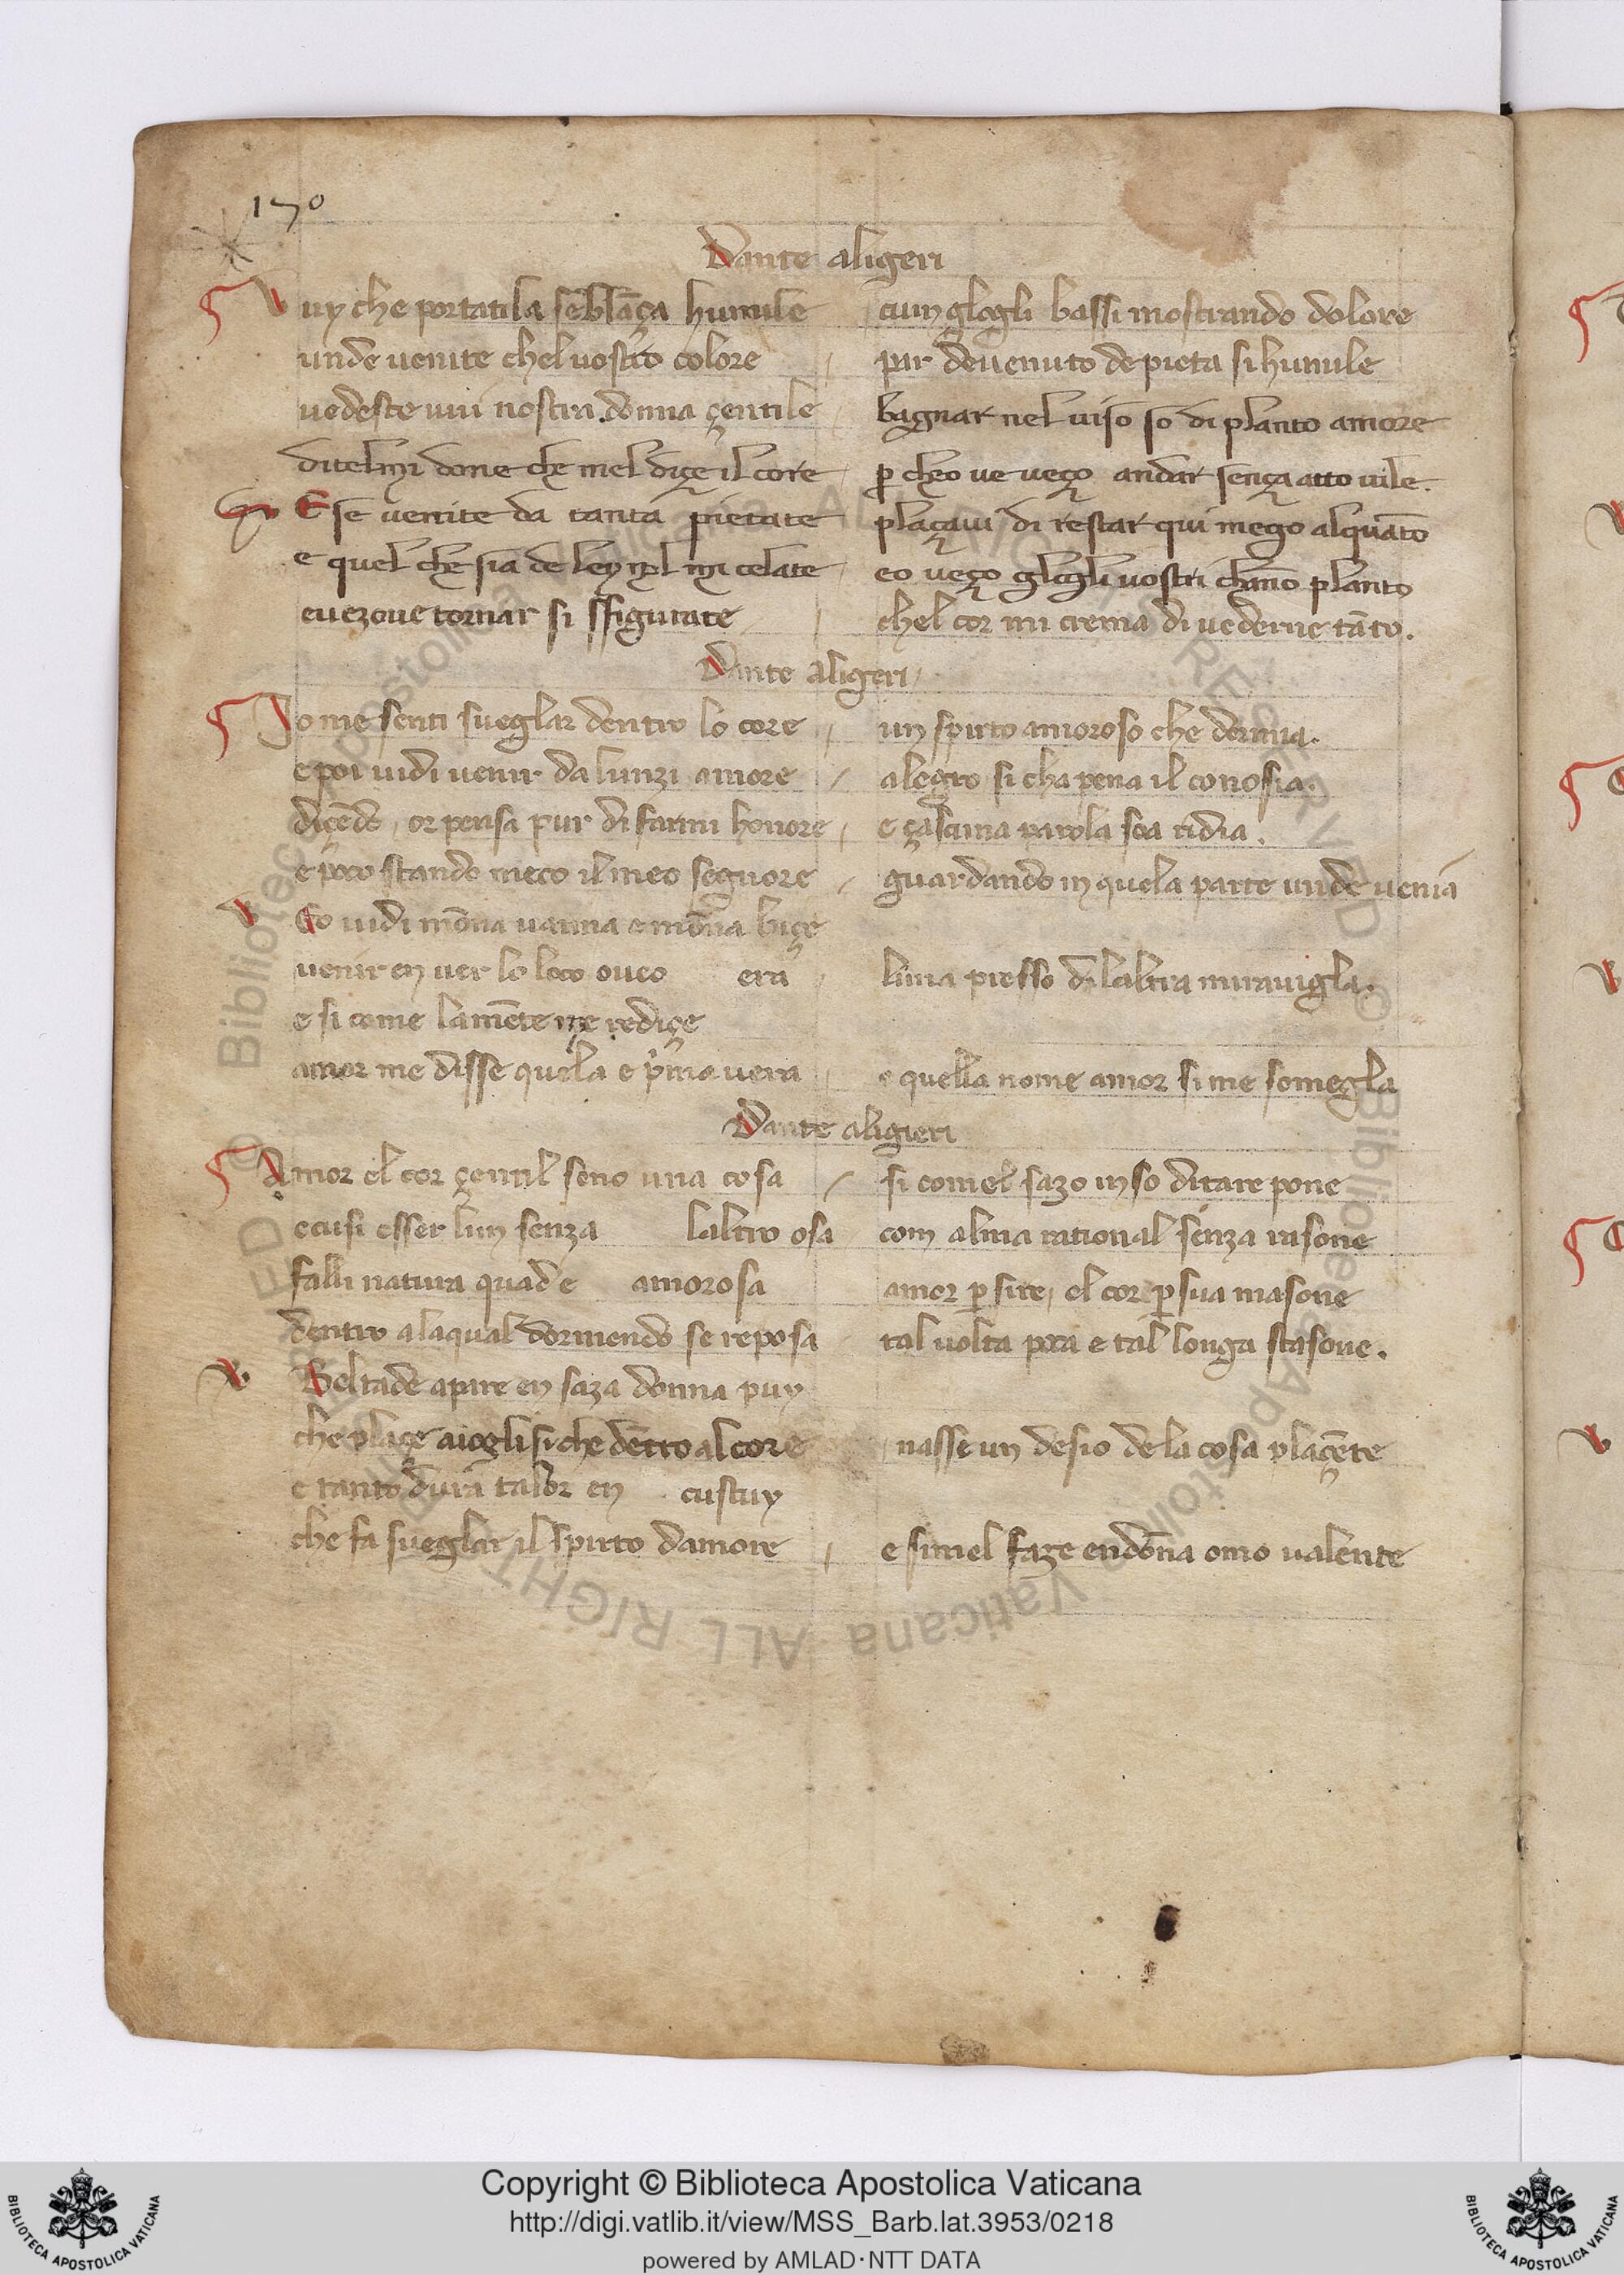 170
Dante aligeri
Vuy che portati la sēblāça humile cum glogli bassi mostrando dolore
unde venite chel vostro colore par devenuto de pieta si humile
vedeste vui nostra donna çentile bagnar nel viso so di planto amore
ditelmi done che mel diçe il core p cheo ve veço andar sença atto vile.
E se venite da tanta pietate plaçavi di restar qui mego alquāto
e quel che sia de ley nol mi celate eo veço glogli vostri chāno planto
e vezove tornar si sfigurate chel cor mi trema di vederne tāto.
Dante aligeri
Io me senti sueglar dentro lo core un spirto amoroso che dormia.
e poi vidi venir da lunzi amore alegro si cha pena il conosia.
diçēdo, or pensa pur di farmi honore e çascuna parola soa ridia.
e poco stando meco il meo segnore guardando in quela parte unde venia
Eo vidi mōna vanna e mōna biçe
venir en ver lo loco oveo era luna presso di laltra miravigla.
e si come la mēte me rediçe
amor me disse quela e p'mavera e quella nome amor si me somegla
Dante aligieri
Amor el cor çentil seno una cosa si comel sazo in so ditare pone
e cusi esser lun senza laltro osa com alma rational senza rasone
falli natura quad e amorosa amor p sire, el cor p sua masone
dentro a laqual dormendo se reposa tal volta poca e tal longa stasone.
Beltade apare en saza donna puy
che plaçe ai ogli si che dētro al core nasse un desio de la cosa plaçēte
e tanto dura talor en custuy
che fa sueglar il spirto damore e simel faze en dōna omo valente
© Biblioteca Apostolica Vaticana ALL RIGHTS RESERVED
Copyright © Biblioteca Apostolica Vaticana
http://digi.vatlib.it/view/MSS_Barb.lat.3953/0218
powered by AMLAD·NTT DATA
BIBLIOTECA APOSTOLICA VATICANA
BIBLIOTECA APOSTOLICA VATICANA